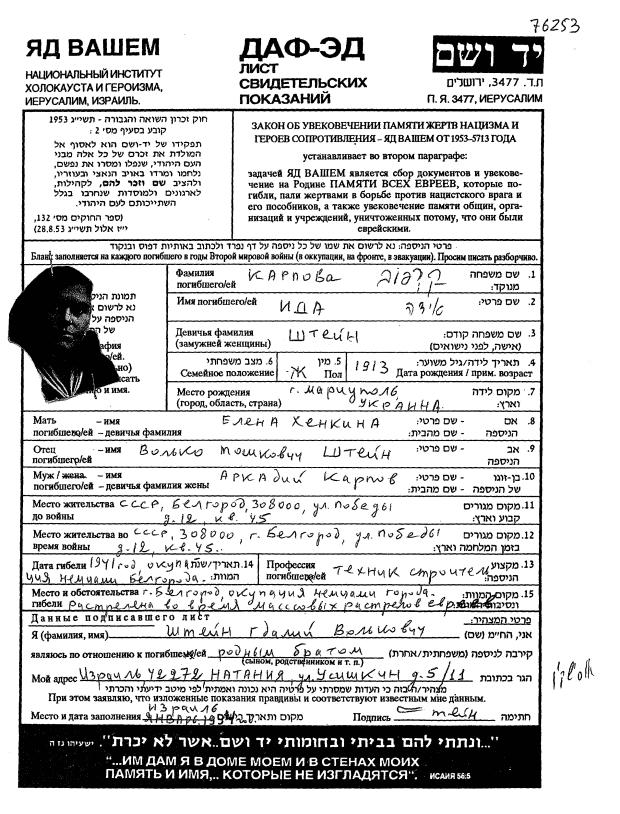 76253
ЯД ВАШЕМ
НАЦИОНАЛЬНЫЙ ИНСТИТУТ
ХОЛОКАУСТА И ГЕРОИЗМА,
ИЕРУСАЛИМ, ИЗРАИЛЬ.
ДАФ-ЭД
ЛИСТ
СВИДЕТЕЛЬСКИХ
ПОКАЗАНИЙ
יד ושם
ת.ד. 3477, ירושלים
П. Я. 3477, ИЕРУСАЛИМ
חוק זכרון השואה והגבורה - תשי״ג 1953
קובע בסעיף מס׳ 2:
תפקידו של יד-ושם הוא לאסוף אל
המולדת את זכרם של כל אלה מבני
העם היהודי, שנפלו ומסרו את נפשם,
נלחמו ומרדו באויב הנאצי ובעוזריו,
ולהציב שם וזכר להם, לקהילות,
לארגונים ולמוסדות שנחרבו בגלל
השתייכותם לעם היהודי.
(ספר החוקים מס׳ 132,
י״ז אלול תשי״ג 28.8.53)
ЗАКОН ОБ УВЕКОВЕЧЕНИИ ПАМЯТИ ЖЕРТВ НАЦИЗМА И
ГЕРОЕВ СОПРОТИВЛЕНИЯ – ЯД ВАШЕМ ОТ 1953–5713 ГОДА
устанавливает во втором параграфе:
задачей ЯД ВАШЕМ является сбор документов и увековече-
ние на Родине ПАМЯТИ ВСЕХ ЕВРЕЕВ, которые по-
гибли, пали жертвами в борьбе против нацистского врага и
его пособников, а также увековечение памяти общин, орга-
низаций и учреждений, уничтоженных потому, что они были
еврейскими.
פרטי הניספה: נא לרשום את שמו של כל ניספה על דף נפרד ולכתוב באותיות דפוס ובנקוד
Бланк заполняется на каждого погибшего в годы Второй мировой войны (в оккупации, на фронте, в эвакуации). Просим писать разборчиво.
Фамилия погибшего/ей КАРПОВА 1. שם משפחה מנוקד:
Имя погибшего/ей ИДА אידה 2. שם פרטי:
Девичья фамилия (замужней женщины) ШТЕЙН 3. שם משפחה קודם: (אישה, לפני נישואים)
Семейное положение 6. מצב משפחתי Ж 5. מין Пол 1913 4. תאריך לידה/גיל משוער: Дата рождения / прим. возраст
Место рождения (город, область, страна) г. Мариуполь, УКРАИНА. 7. מקום לידה וארץ:
Мать погибшего/ей – имя – девичья фамилия Елена Хенкина 8. אם הניספה - שם פרטי: - שם מהבית:
Отец погибшего/ей – имя Волько Мошкович Штейн 9. אב הניספה - שם פרטי:
Муж / жена. – имя погибшего/ей – девичья фамилия жены Аркадий Карпов 10. בן-זוגו של הניספה - שם פרטי: - שם מהבית:
Место жительства до войны СССР, Белгород, 308000, ул. Победы 11. מקום מגורים קבוע וארץ:
д. 12, кв. 45
Место жительства во время войны СССР, 308000, г. Белгород, ул. Победы 12. מקום מגורים בזמן המלחמה וארץ:
д. 12, кв. 45.
Дата гибели 1941 год, оккупация немцами Белгорода. 14. תאריך/שנת המוות: Профессия погибшего/ей техник строитель 13. מקצוע הניספה:
Место и обстоятельства гибели г. Белгород, оккупация немцами города. 15. מקום המוות: ונסיבות
Растрелена во время массовых растрелов евреев
Данные подписавшего лист פרטי המצהיר:
Я (фамилия, имя) Штейн Вольхович אני, הח״מ (שם)
являюсь по отношению к погибшему/ей родным братом קירבה לניספה (משפחתית/אחרת)
(сыном, родственником и т. п.)
Мой адрес Израиль 42272 НАТАНИЯ, ул. Усишкин д. 5/11 הגר בכתובת
מצהיר/ה בזה כי העדות שמסרתי על פרטיה היא נכונה ואמתית לפי מיטב ידיעתי והכרתי
При этом заявляю, что изложенные показания правдивы и соответствуют известным мне данным.
Израиль
Место и дата заполнения январь, 1994 מקום ותאריך Подпись חתימה
״...ונתתי להם בביתי ובחומותי יד ושם...אשר לא יכרת״. ישעיהו נו ה
“...ИМ ДАМ Я В ДОМЕ МОЕМ И В СТЕНАХ МОИХ
ПАМЯТЬ И ИМЯ,.. КОТОРЫЕ НЕ ИЗГЛАДЯТСЯ“. ИСАИЯ 56:5